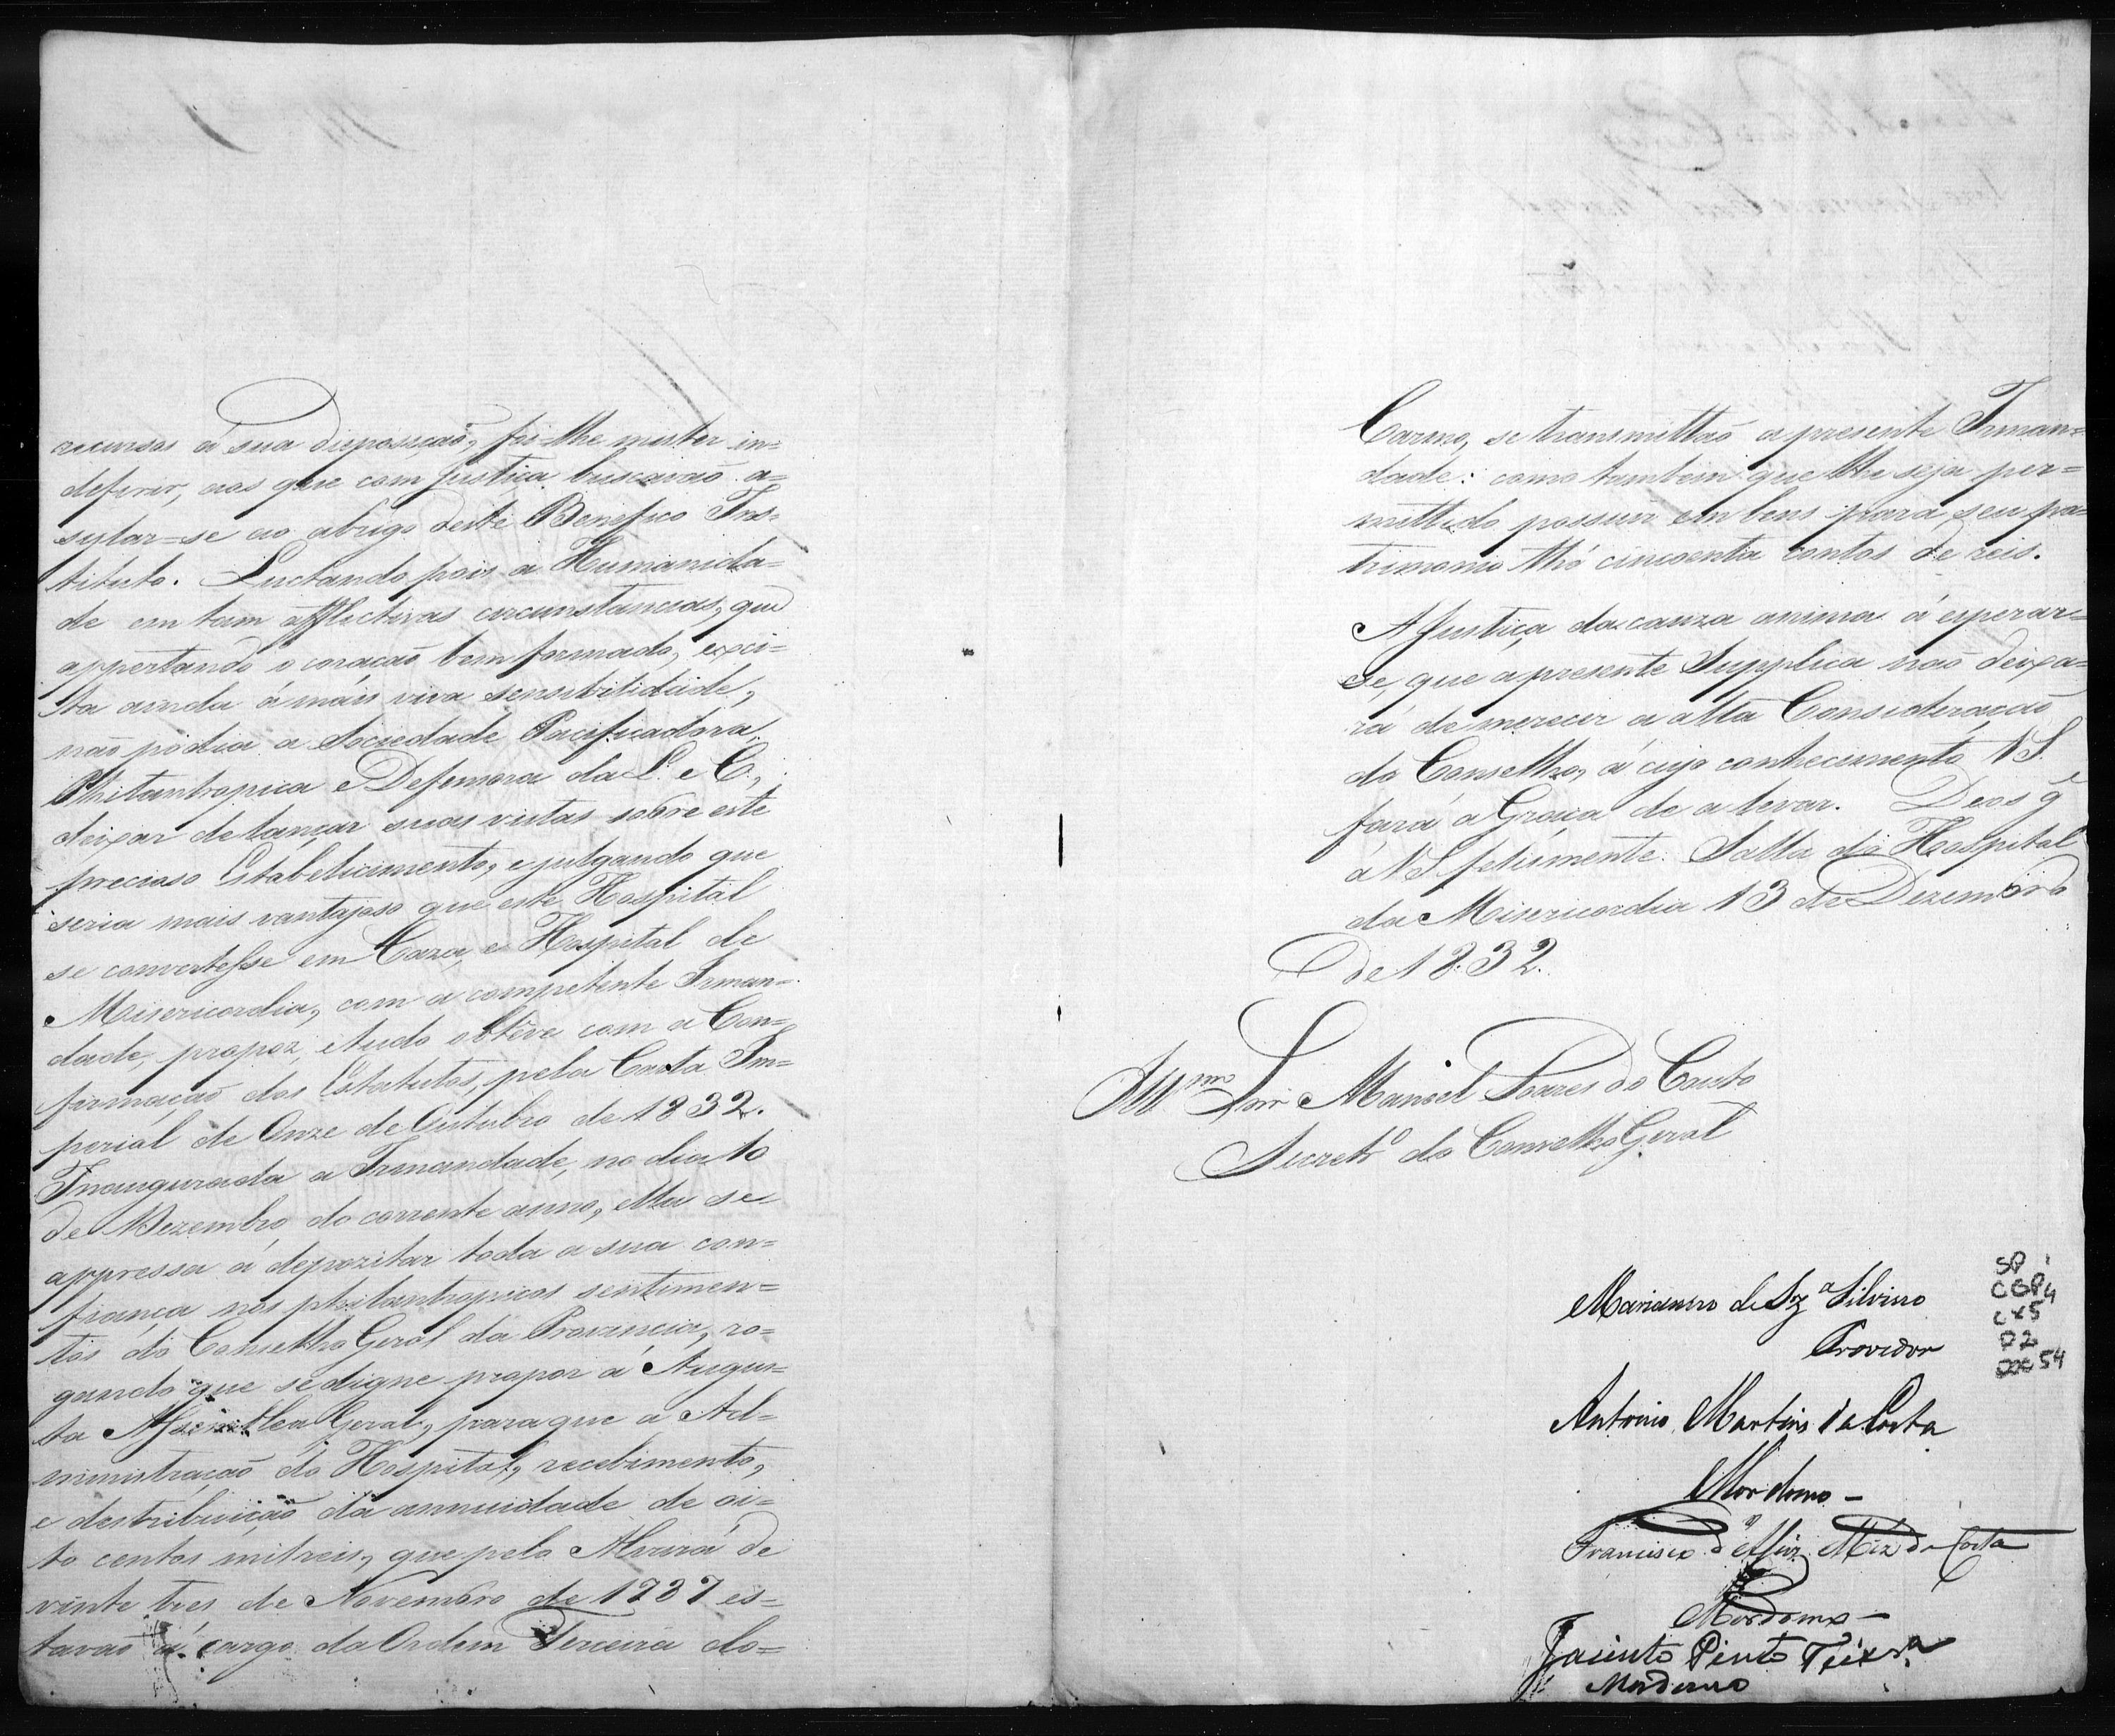 recursos á sua disposição, foi-lhe mister in=
deferir, aos que com justiça buscavão a=
sylar=se ao abrigo deste Benefico Ins=
tituto. Luctando pois a Humanida=
de em tam afflictivas circunstancias, que
appertando o coração bem formado, exci=
ta ainda á mais viva sensibilidade,
não podia a Sociedade Pacificadora,
Philantropica e Defensora da L. e C.,
deixar de lançar suas vistas sobre este
precioso Estabelicimento, e julgando que
seria mais vantajoso que este Hospital
se convertesse em Caza, e Hospital de
Misericordia, com a competente Irman=
dade, propoz, e tudo obteve com a Con=
firmação dos Estatutos, pela Carta Im=
perial de Onze de Outubro de 1832.
Inaugurada a Irmandade, no dia 10
de Dezembro do corrente anno, ella se
appressa á depozitar toda a sua con=
fiança nos philantropicos sentimen=
tos do Conselho Geral da Provincia, ro=
gando que se digne propor á Augus=
ta Assemblea Geral, para que a Ad=
ministração do Hospital, recebimento,
e destribuição da annuidade de oi=
to centos mil reis, que pelo Alvará de
vinte tres de Novembro de 1787 es=
tavão á cargo da Ordem Terceira do=
Carmo, se transmittão a presente Irman=
dade: como tambem que lhe seja per=
mittido possuir em bens para seu pa=
trimonio thé cincoenta contos de reis.
A Justiça da cauza anima á esperar=
se, que a presente Supplica não deixa=
rá de merecer a alta Consideração
do Conselho, á cujo conhecimento V S.
fará a Graça de a levar. Deos g.e
a V S felismente. Salla do Hospital
da Misericordia 13 de Dezembro
de 1832.
Ill.mo Snr Manoel Soares do Couto
Secret.o do Conselho Geral
Marianno de Sz.a Silvino
Provedor
Antonio Martins da Costa
Mordomo -
Francisco d'Assiz Miz da Costa
Mordomo -
Jacinto Pinto Teixr.a
Mordomo
SP
CGP4
cx5
P2
54